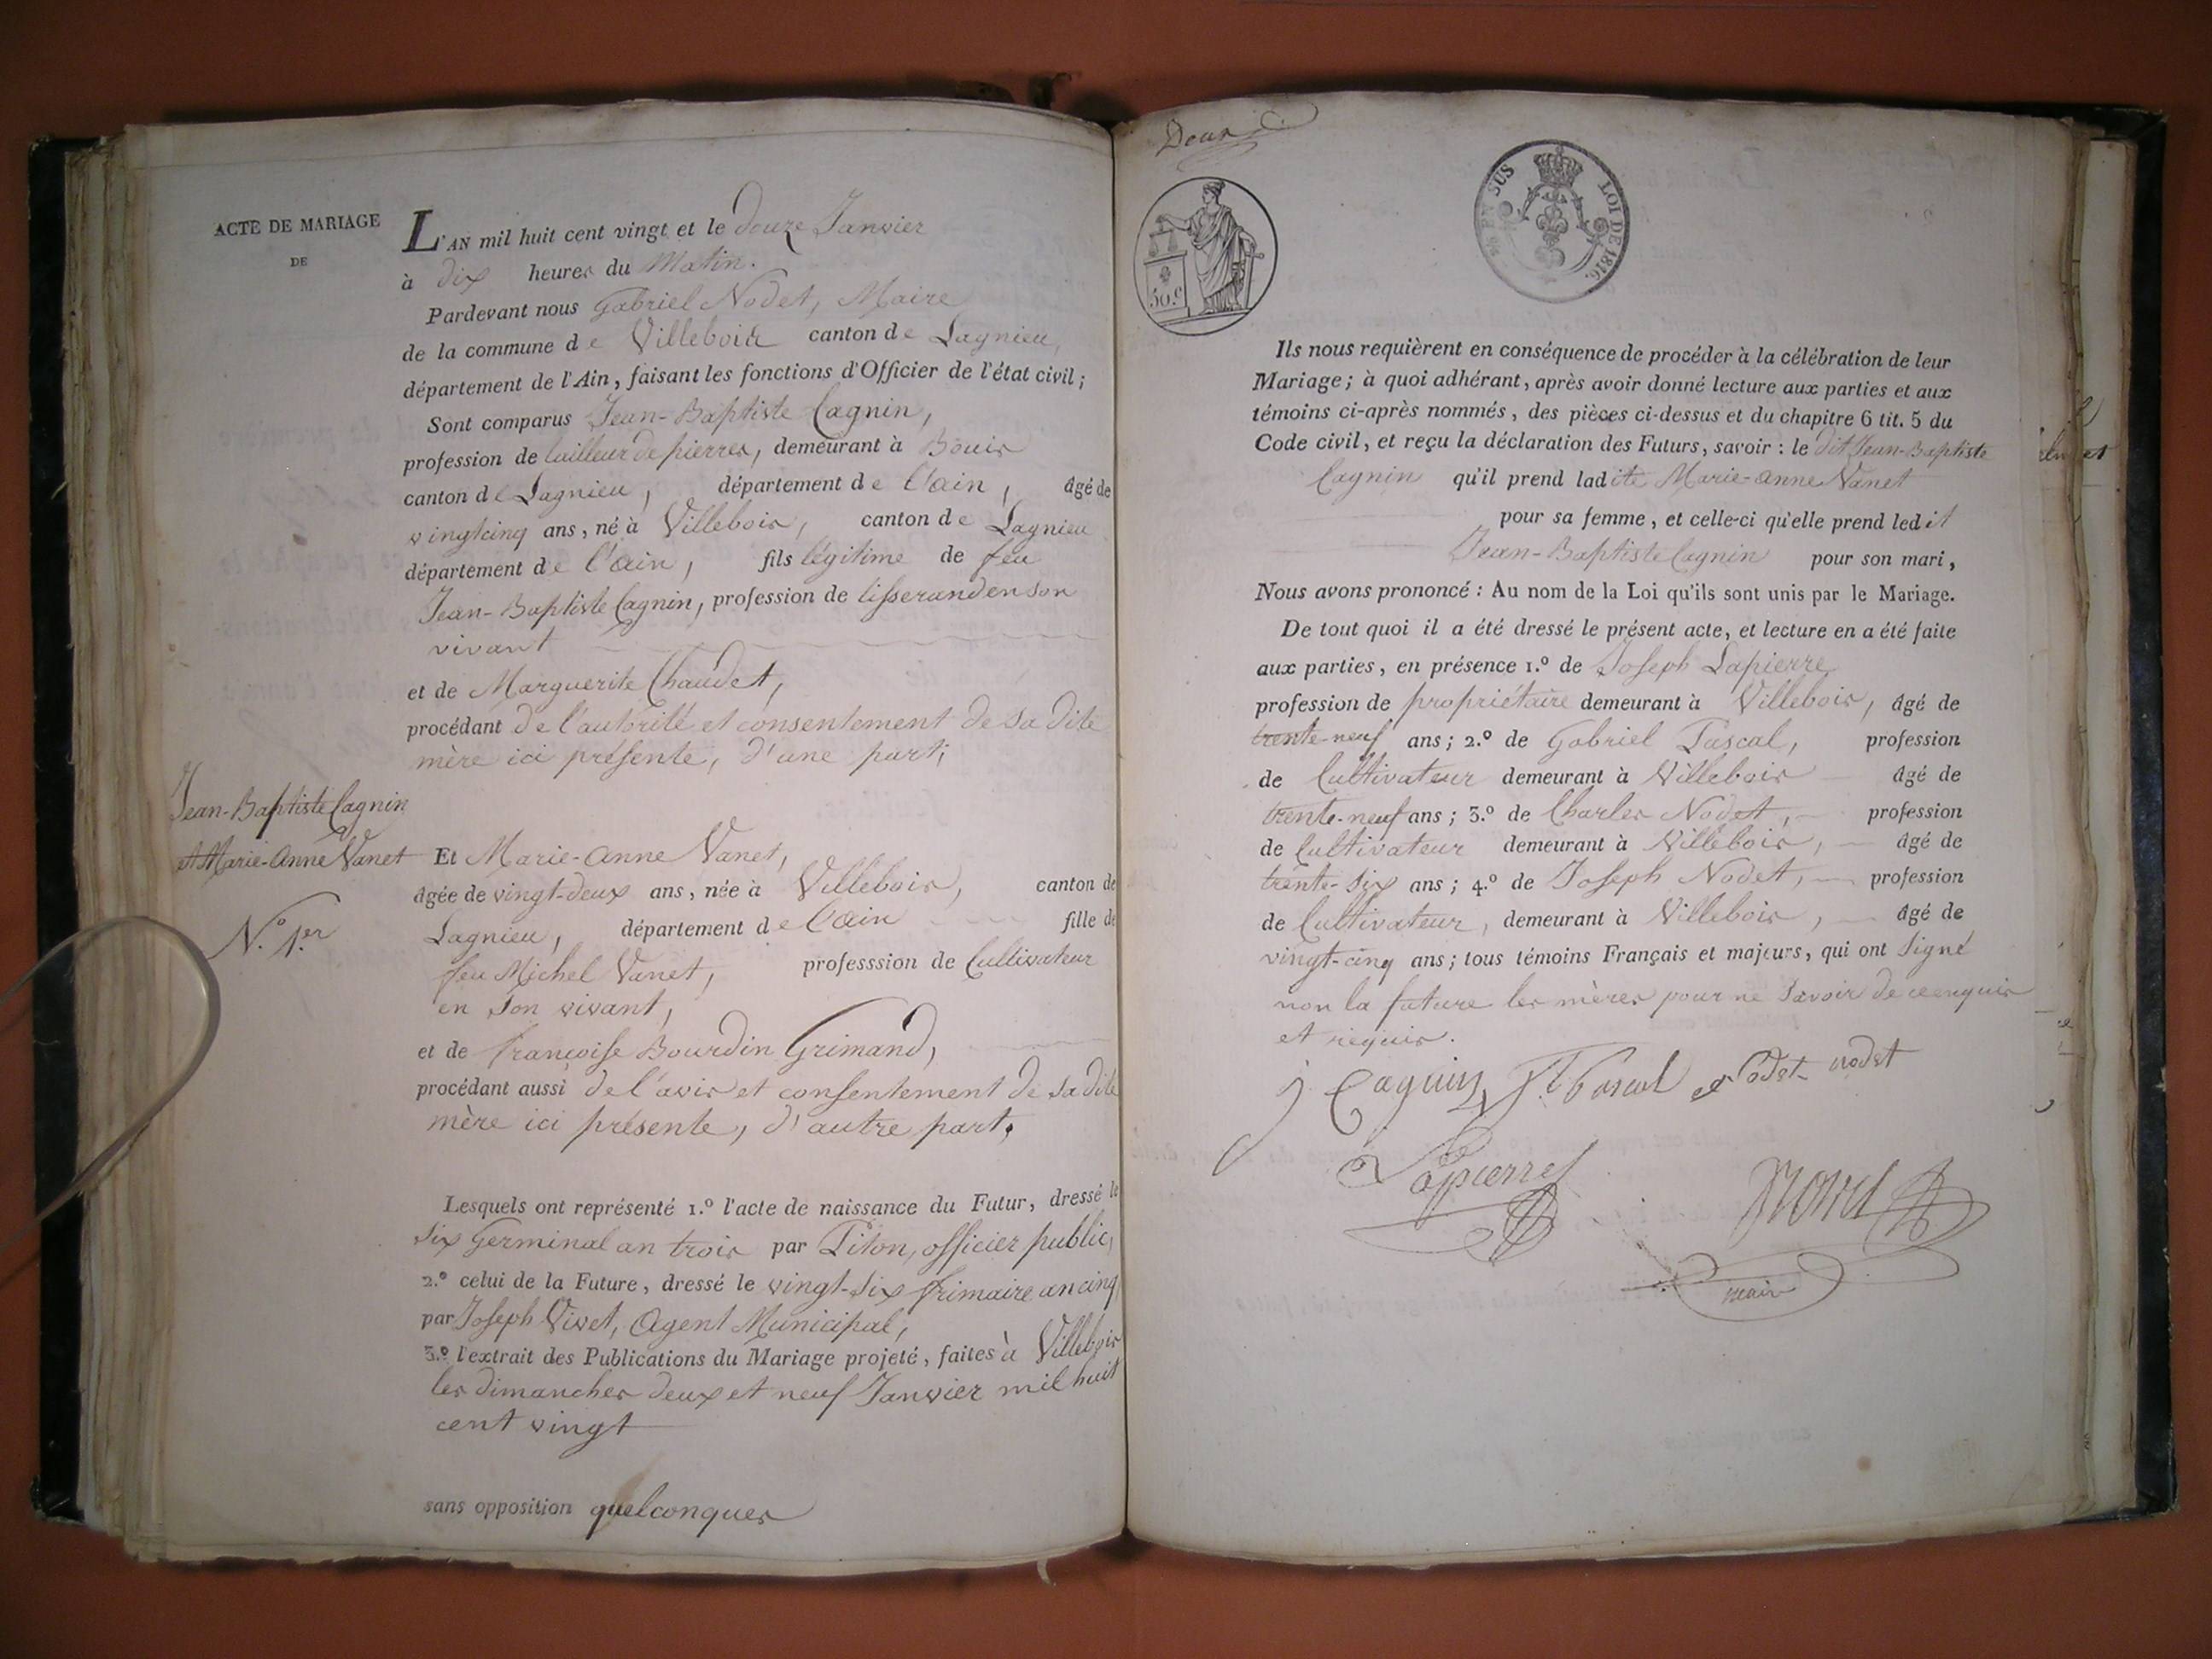 ACTE DE MARIAGE
DE
Jean-Baptiste Cagnin
et Marie-Anne Vanet
N.º 1.er
L'AN mil huit cent vingt et le douze Janvier
à dix heures du Matin.
Pardevant nous Gabriel Nodet, Maire
de la commune de Villebois canton de Lagnieu,
département de l'Ain, faisant les fonctions d'Officier de l'état civil;
Sont comparus Jean-Baptiste Cagnin,
profession de tailleur de pierres, demeurant à Bouis
canton de Lagnieu, département de l'ain, âgé de
vingtcinq ans, né à Villebois, canton de Lagnieu
département de l'ain, fils légitime de feu
Jean-Baptiste Cagnin, profession de tisserand en son
vivant
et de Marguerite Chaudet,
procédant de l'autorité et consentement de sa dite
mère ici présente, d'une part;
Et Marie-Anne Vanet,
âgée de vingt-deux ans, née à Villebois, canton de
Lagnieu, département de l'ain fille de
feu Michel Vanet, professsion de Cultivateur
en son vivant,
et de françoise Bourdin Grimand,
procédant aussi de l'avis et consentement de sa dite
mère ici présente, d'autre part,
Lesquels ont représenté 1.º l'acte de naissance du Futur, dressé le
six Germinal an trois par Piton, officier public,
2.º celui de la Future, dressé le vingt-six frimaire an cinq
par Joseph Vivet, Agent Municipal,
3.º l'extrait des Publications du Mariage projeté, faites à Villebois
les dimanches deux et neuf Janvier mil huit
cent vingt
sans opposition quelconques
Deux
50.C
EN SUS
LOI DE 1816.
Ils nous requièrent en conséquence de procéder à la célébration de leur
Mariage; à quoi adhérant, après avoir donné lecture aux parties et aux
témoins ci-après nommés, des pièces ci-dessus et du chapitre 6 tit. 5 du
Code civil, et reçu la déclaration des Futurs, savoir : le dit Jean-Baptiste
Cagnin qu'il prend ladite Marie-Anne Vanet
pour sa femme, et celle-ci qu'elle prend ledit
Jean-Baptiste Cagnin pour son mari,
Nous avons prononcé : Au nom de la Loi qu'ils sont unis par le Mariage.
De tout quoi il a été dressé le présent acte, et lecture en a été faite
aux parties, en présence 1.º de Joseph Lapierre
profession de propriétaire demeurant à Villebois, âgé de
trente-neuf ans; 2.º de Gabriel Pascal, profession
de Cultivateur demeurant à Villebois âgé de
trente-neuf ans; 3.º de Charles Nodet, profession
de Cultivateur demeurant à Villebois, âgé de
trente-six ans; 4.º de Joseph Nodet, profession
de Cultivateur, demeurant à Villebois, âgé de
vingt-cinq ans; tous témoins Français et majeurs, qui ont signé
non la future les mères pour ne savoir de ce enquis
et requis.
j Cagnin Pascal Nodet nodet
Lapierre Nodet
maire